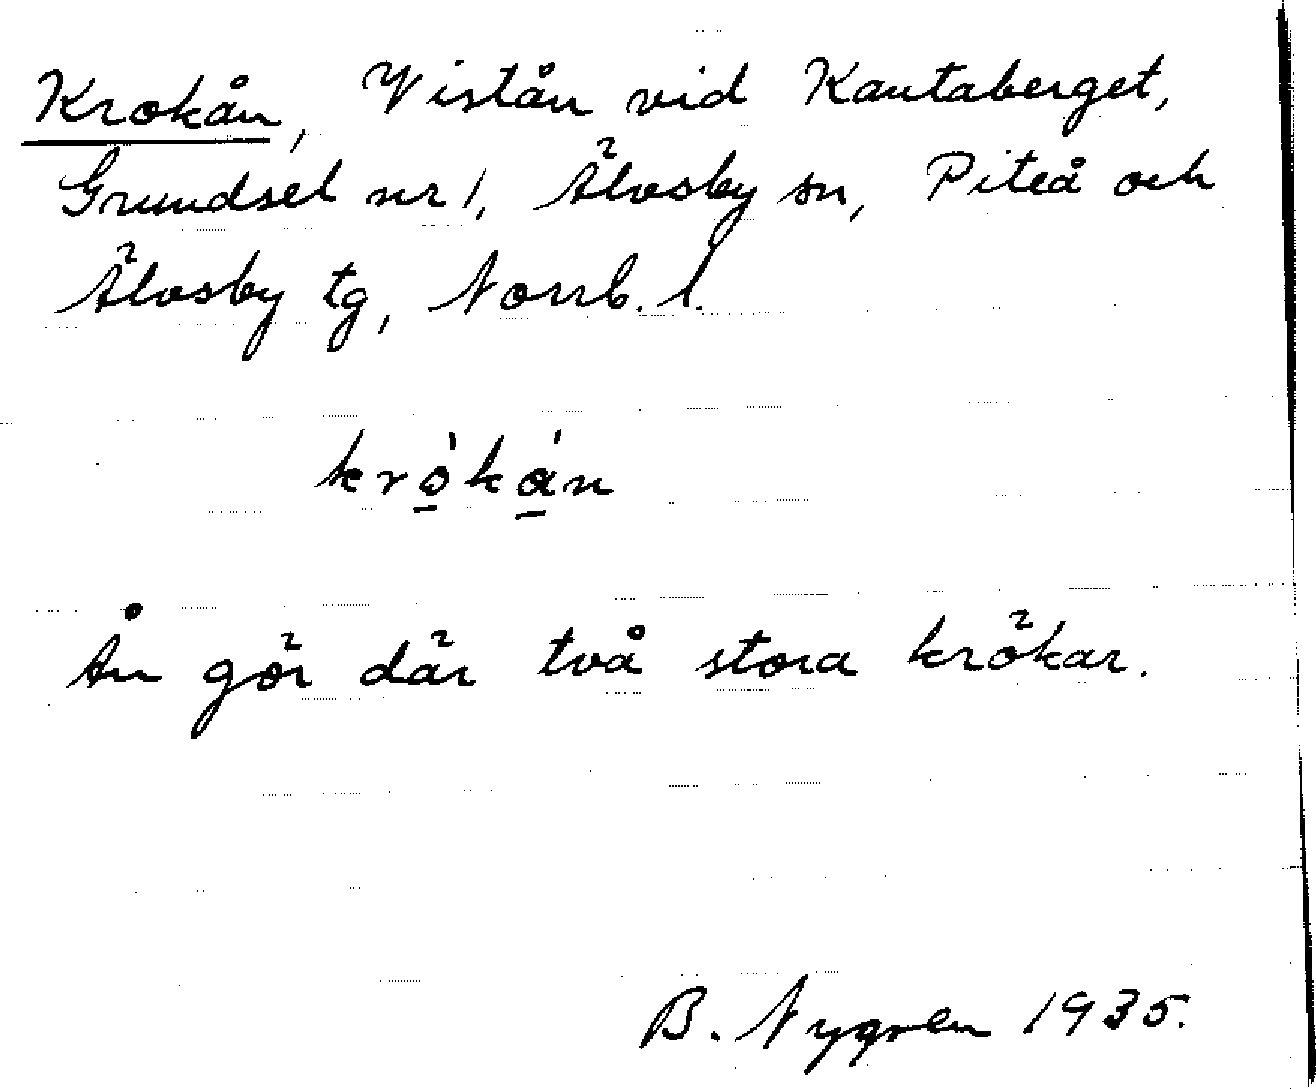 Krokån, Vistån vid Kantaberget,
Grundsel nr 1, Älvsby sn, Piteå och
Älvsby tg, Norrb. l.
krò̱ká̱n
Ån gör där två stora krökar.
B. Nygren 1935.